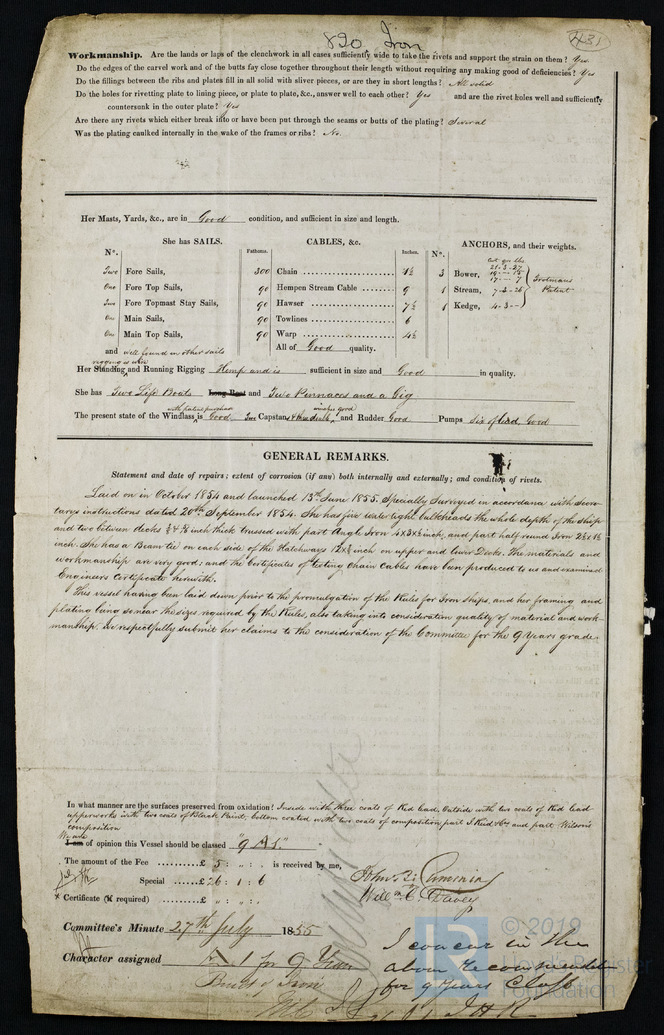 820 Iron
431
Workmanship. Are the lands or laps of the clenchwork in all cases sufficiently wide to take the rivets and support the strain on them? Yes
Do the edges of the carvel work and of the butts fay close together throughout their length without requiring any making good of deficiencies? Yes
Do the fillings between the ribs and plates fill in all solid with sliver pieces, or are they in short lengths? All solid
Do the holes for rivetting plate to lining piece, or plate to plate, &c., answer well to each other? Yes and are the rivet holes well and sufficiently
countersunk in the outer plate? Yes
Are there any rivets which either break into or have been put through the seams or butts of the plating? Several
Was the plating caulked internally in the wake of the frames or ribs? No.
Her Masts, Yards, &c., are in Good condition, and sufficient in size and length.
She has SAILS. CABLES, &c. ANCHORS, and their weights.
No. Fathoms. Inches. No.
Two Fore Sails, 300 Chain 3 Bower,
One Fore Top Sails, 90 Hempen Stream Cable 9 1 Stream,
Two Fore Topmast Stay Sails, 90 Hawser 7½ 1 Kedge, 4-3--
One Main Sails, 90 Towlines 6
One Main Top Sails, 90 Warp 4½
Trotmans Patent
and well found in other sails All of Good quality.
rigging is wire
Her Standing and Running Rigging Hemp and is sufficient in size and Good in quality.
She has Two Life Boats Long Boat and Two Pinnaces and a Gig
with patent purchase
The present state of the Windlass is Good, Capstan and Rudder Good Pumps Six of Lead, Good
GENERAL REMARKS.
Statement and date of repairs; extent of corrosion (if any) both internally and externally; and condition of rivets.
Laid on in October 1854 and launched 13th June 1855. Specially Surveyed in accordance with Secre-
tarys instructions dated 20th September 1854. She has five watertight bulkheads the whole depth of the Ship
and two between decks inch thick trussed with part Angle Iron inch, and part half round Iron
inch. She has a Beam tie on each side of the Hatchways inch on upper and lower Decks. The materials and
workmanship are very good; and the Certificates of testing Chain Cables have been produced to us and examined
Engineers Certificate herewith.
This vessel having been laid down prior to the promulgation of the Rules for Iron Ships, and her framing and
plating being so near the sizes required by the Rules, also taking into consideration quality of material and work-
manship. We respectfully submit her claims to the consideration of the Committee for the 9 Years grade.
In what manner are the surfaces preserved from oxidation? Inside with three coats of Red lead, Outside with two coats of Red lead
upperworks with two coats of Black Paint, bottom coated with two coats of composition part and part Wilson's
composition
We are
I am of opinion this Vessel should be classed "9 A 1."
The amount of the Fee £ 5 : " : is received by me,
Special £ 26 : 1 : 6
Certificate (if required) £ " : " :
Committee's Minute 27th July 1855
Character assigned A 1 for 9 Years
Built of Iron
I concur in the
above recommendation
for 9 Years Class
© 2019
Lloyd's Register
Foundation